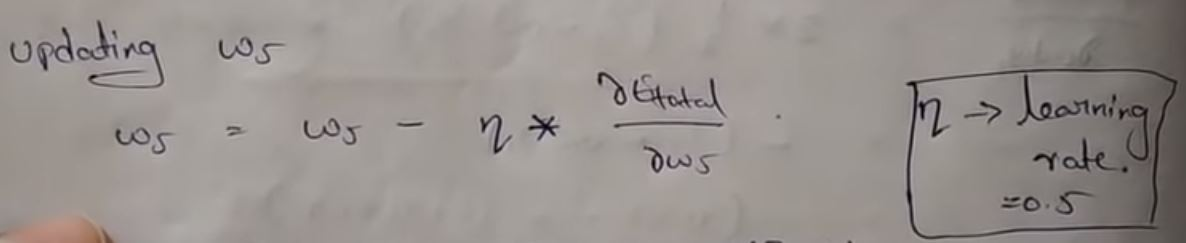 updating w5
w5 = w5 - η * ∂Etotal / ∂w5
η → learning
rate.
=0.5